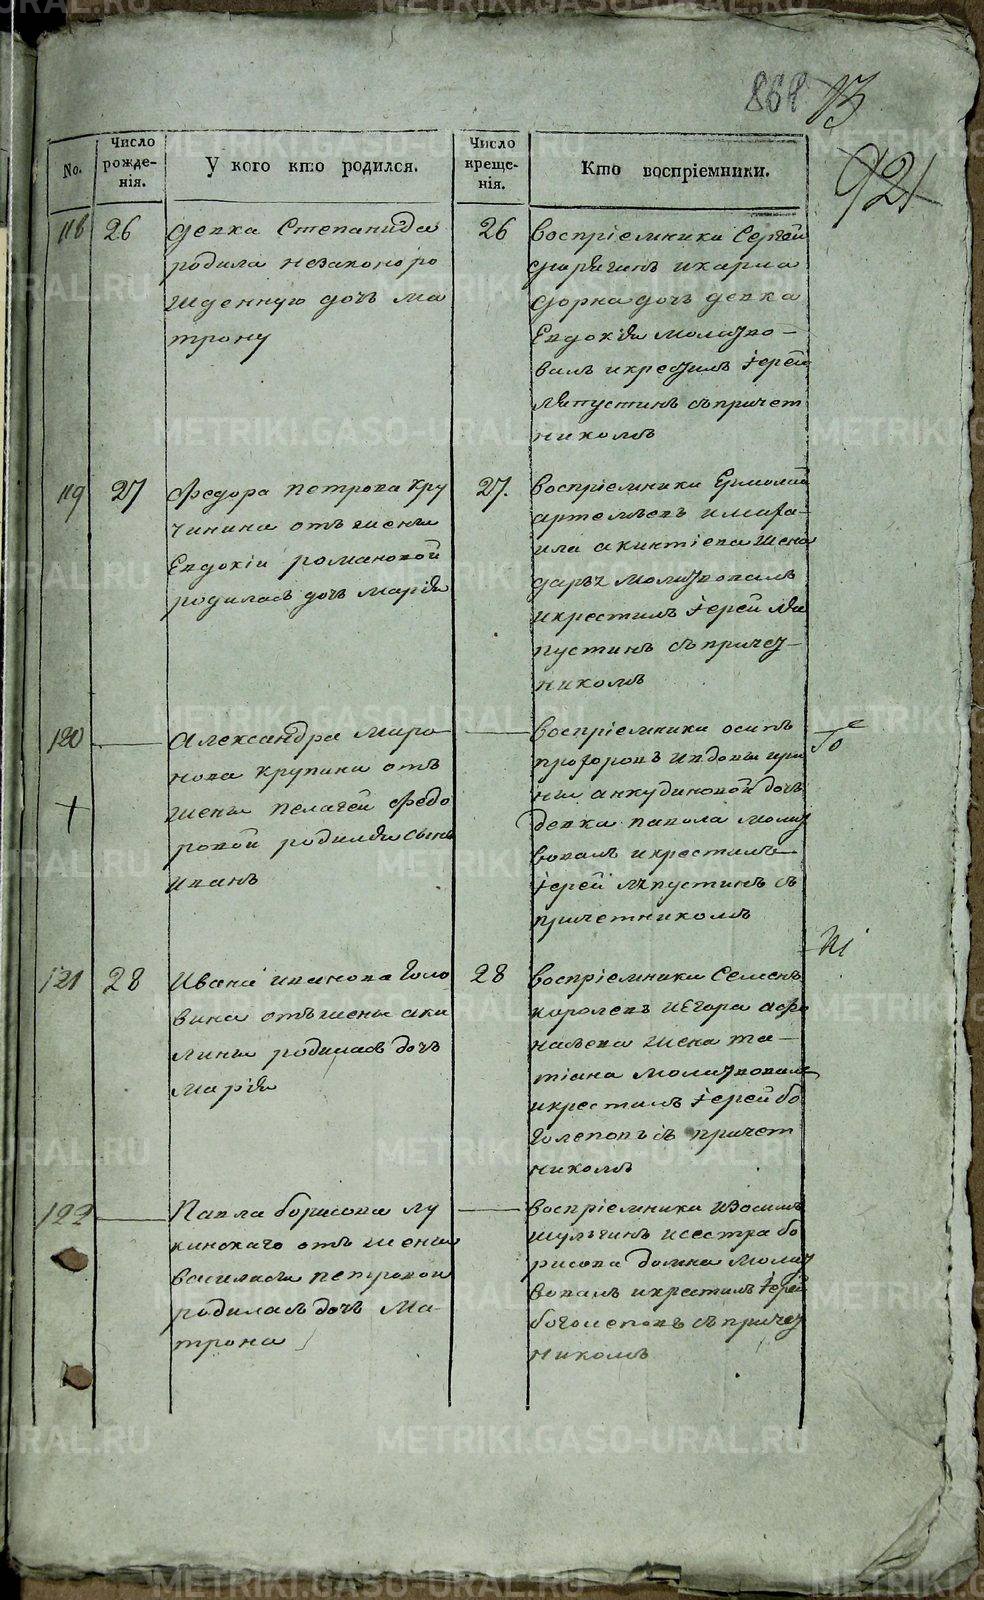 868 13
921
No.
Число рожде-нія.
У кого кто родился.
Число креще-нія.
Кто воспріемники.
118
26
девка Степанида
родила незаконоро
жденную дочь Ма
трону
26
Воспріемники Сергей
икарпа
дочь девка
Евдокія молитво-
валъ икрестилъ Іерей
Ляпустинъ съпричет
никомъ
119
27
Федора Петрова Кру
чинина отъ жены
Евдокіи романовой
родилась дочь Марія
27.
Воспріемники Ермолай
артемьевъ имиха-
ила акинтіева жена
дарья молитвовалъ
икрестилъ Іерей Ля
пустинъ съпричет-
никомъ
120
Александра Миро
нова крупина отъ
жены пелагеи Федо
ровой родился сынъ
Иванъ
Воспріемники осипъ
прохоровъ ивдовы ири
ны анкудиновой дочь
девка павола молит
вовалъ икрестилъ
Іерей Ляпустинъ съ
причетникомъ
121
28
Ивана иванова Голо
вина отъжены аки
лины родилась дочь
Марія
28
Воспріемники Семенъ
королевъ иЕгора афо
насьева жена та-
тіана молитвовалъ
икрестилъ Іерей бо
голеповъ съ причет
никомъ
122
Павла борисова Лу
кинскаго отъ жены
василисы петровой
родилась дочь Ма-
трона
Воспріемники Изосимъ
шульгинъ исестра бо
рисова домна молит
вовалъ икрестилъ Іерей
боголеповъ съпричет
никомъ
METRIKI.GASO-URAL.RU